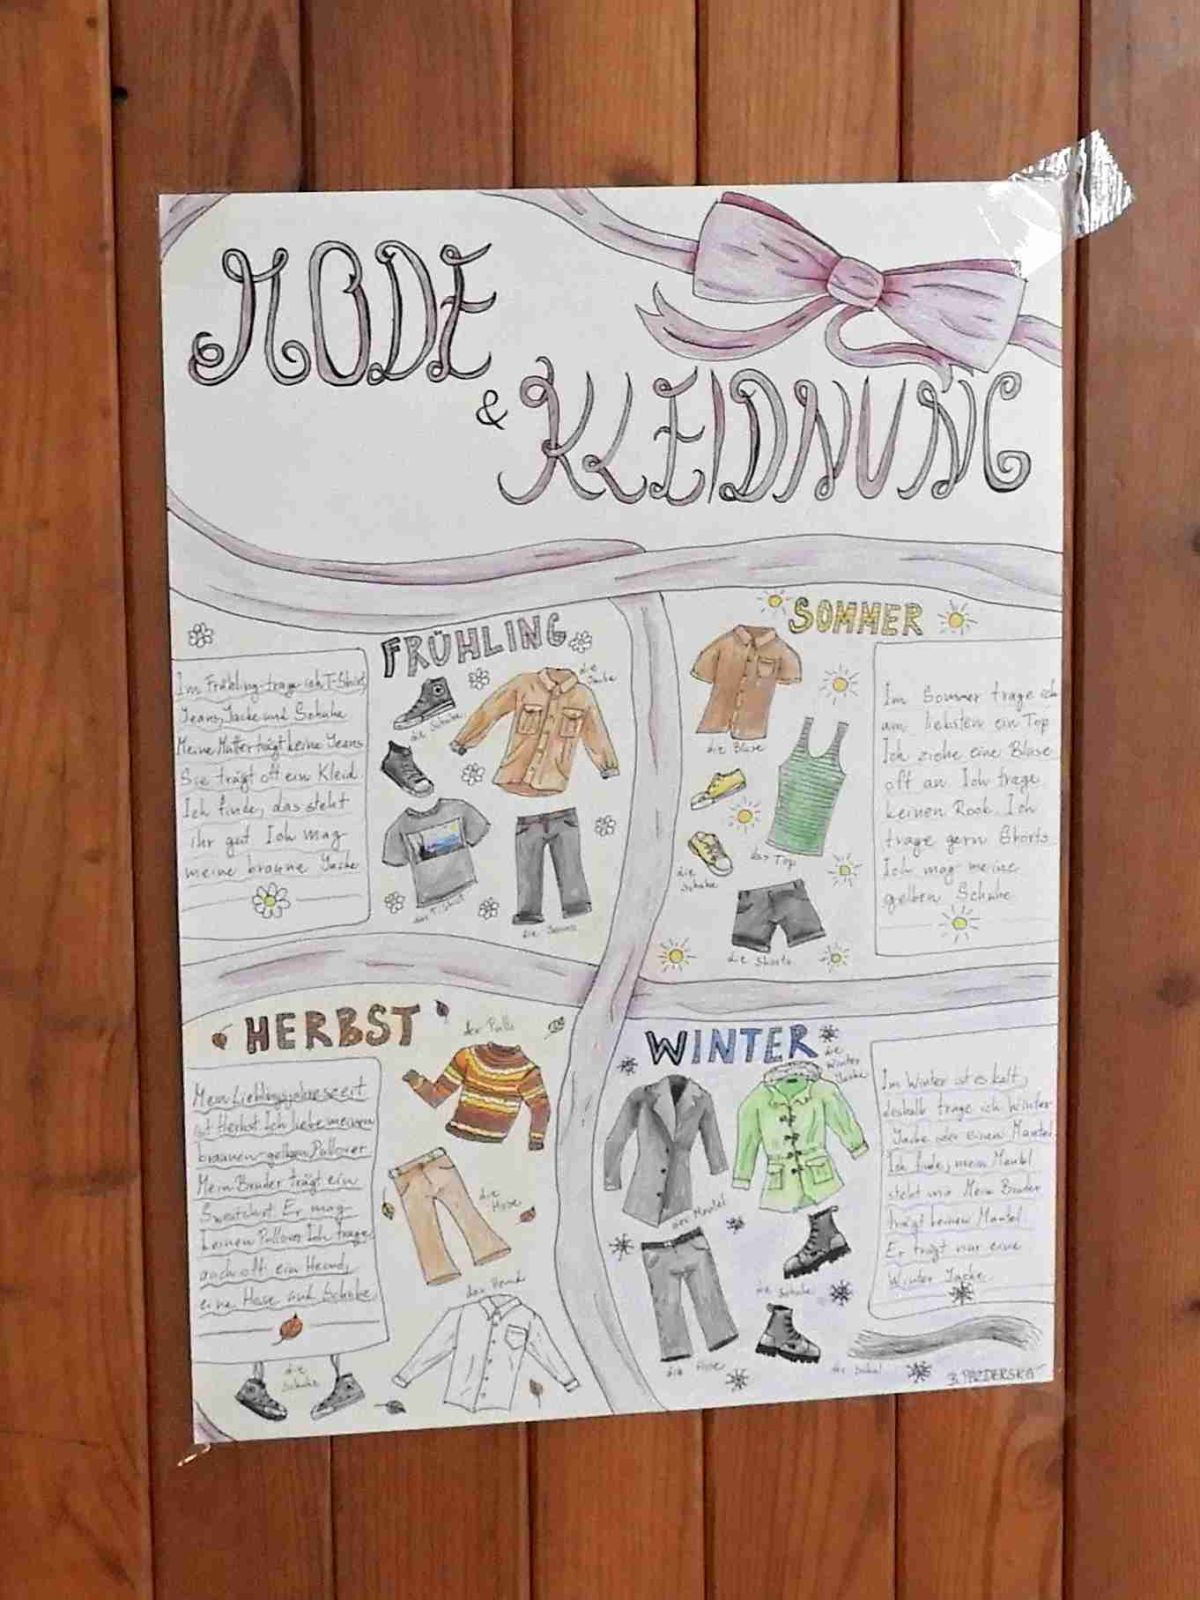 MODE
& KLEIDNUNG
FRÜHLING
Im Frühling trage ich T-Shirt
Jeans, Jacke und Schuhe
Meine Mutter trägt keine Jeans
Sie trägt oft ein Kleid
Ich finde, das steht
ihr gut Ich mag
meine braune Jacke
die Schuhe
die Jacke
das T-Shirt
die Jeans
SOMMER
die Bluse
das Top
die Schuhe
die Shorts
Im Sommer trage ich
am liebsten ein Top
Ich ziehe eine Bluse
oft an Ich trage
keinen Rock. Ich
trage gern Shorts
Ich mag meine
gelben Schuhe
HERBST
der Pulli
Mein Lieblingsjahreszeit
ist Herbst. Ich liebe meinen
braunen-gelben Pullover
Mein Bruder trägt ein
Sweatshirt. Er mag
keinen Pullover Ich trage
auch oft ein Hemd,
eine Hose und Schuhe
die Hose
das Hemd
die Schuhe
WINTER
die Winter Jacke
der Mantel
die Schuhe
die Hose
der Schal
Im Winter ist es kalt,
deshalb trage ich Winter
Jacke oder einen Mantel
Ich finde, mein Mantel
steht mir Mein Bruder
trägt keinen Mantel
Er trägt nur eine
Winter Jacke
B. PAZDERSKA